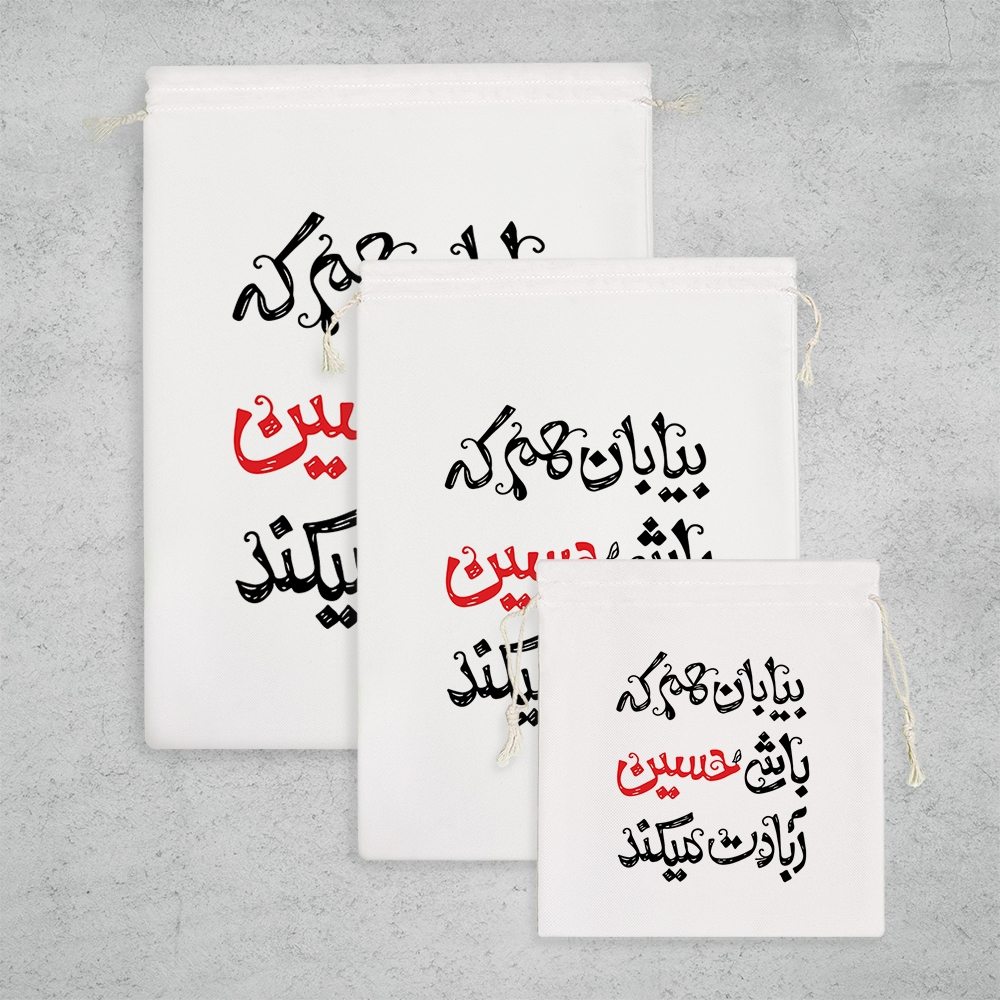 هم که
سین
یکند
بیابان هم که
باشی حسین
یکند
بیابان هم که
باشی حسین
آبادت میکند